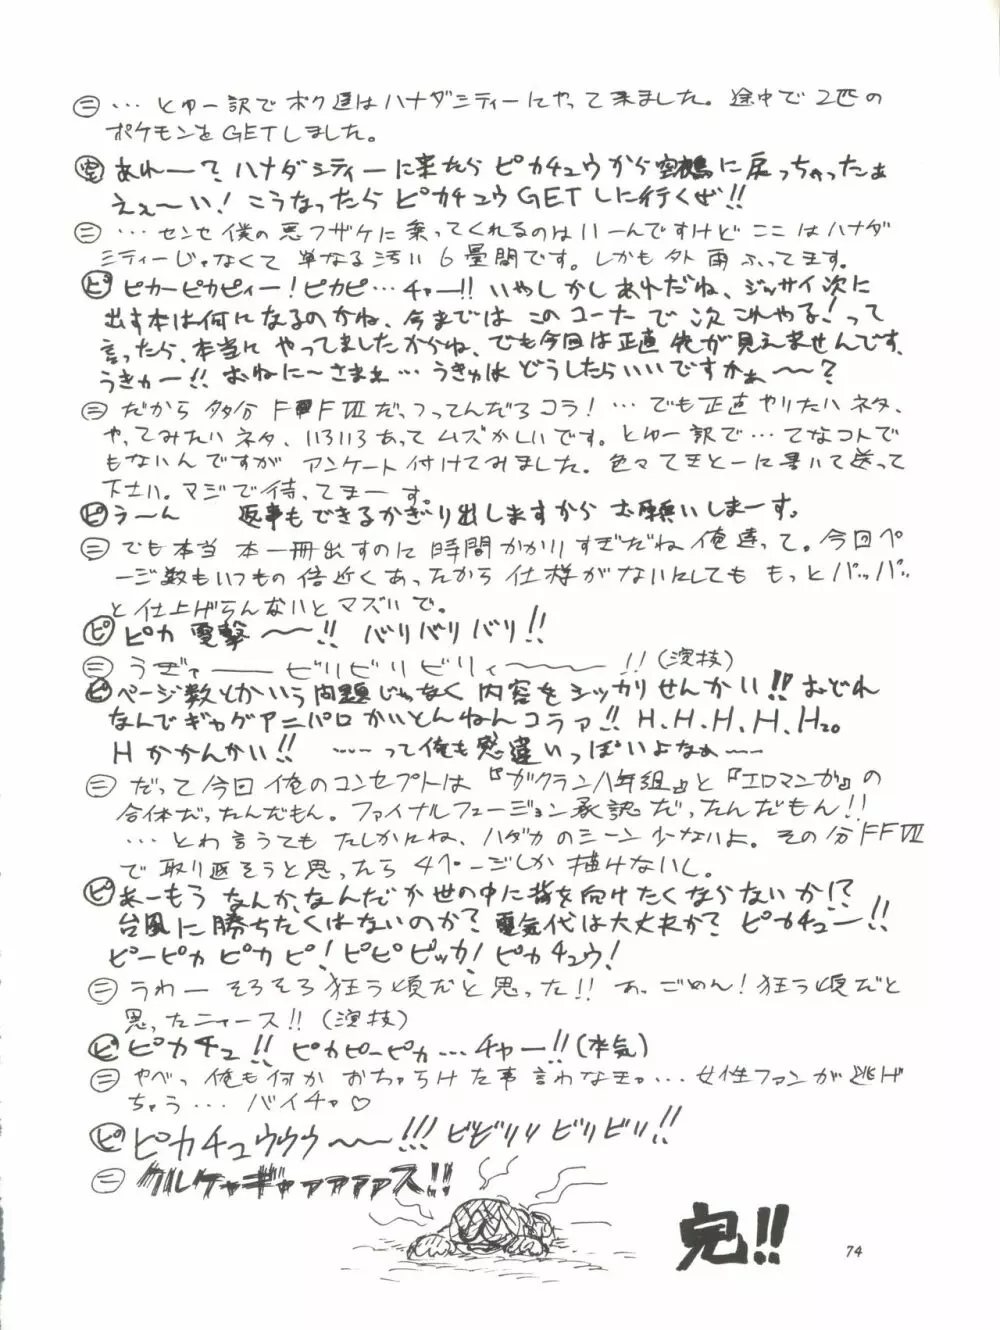 ㊁…とゆー訳でボク達はハナダシティーにやって来ました。途中で2匹の
ポケモンをGETしました。
あれー?ハナダシティーに来たらピカチュウから空鵺に戻っちゃったぁ
えぇ〜い!こうなったらピカチュウGETしに行くぜ!!
㊁…センセ僕の悪フザケに乗ってくれるのはいーんですけどここはハナダ
シティーじゃなくて単なる汚い6畳間です。しかも外雨ふってます。
ピ ピカーピカピィー!ピカピ…チャー!!いやしかしあれだね、ジッサイ次に
出す本は何になるのかね、今まではこのコーナーで次これやる!って
言ったら、本当にやってましたからね、でも今回は正直先が見えませんです、
うきゅー!!おねに〜さまぇ…うきゅはどうしたらいいですかぁ〜〜?
㊁だから多分FFⅦだっつってんだろコラ!…でも正直やりたいネタ、
やってみたいネタ、いろいろあってムズかしいです。とゆー訳で…てなコトで
もないんですがアンケート付けてみました。色々てきとーに書いて送って
下さい。マジで待ってまーす。
ピ うーん 返事もできるかぎり出しますからお願いしまーす。
㊁でも本当本一冊出すのに時間かかりすぎだね俺達って。今回ペ
ージ数もいつもの倍近くあったから仕様がないにしてももっとパッパッ
と仕上げらんないとマズいで。
ピ ピカ電撃〜〜!!バリバリバリ!!
㊁うぎゃ――ビリビリビリィ〜〜〜!!(演技)
ピ ページ数とかいう問題じゃなく内容をシッカリせんかい!!おどれ
なんでギャグアニパロかいとんねんコラァ!!H.H.H.H.H₂₀
Hかかんかい!!……って俺も感違いっぽいよなぁ――
㊁だって今回俺のコンセプトは『ガクラン八年組』と『エロマンガ』の
合体だったんだもん。ファイナルフュージョン承認だったんだもん!!
…とわ言うてもたしかにね、ハダカのシーン少ないよ。その分FFⅦ
で取り返そうと思ったら4ページしか描けないし。
ピ あーもうなんか、なんだか世の中に背を向けたくならないか!?
台風に勝ちたくはないのか?電気代は大丈夫か?ピカチュー!!
ピーピカピカピ!ピピピッカ!ピカチュウ!
㊁うわーそろそろ狂う頃だと思った!!あっごめん!狂う頃だと
思ったニャース!!(演技)
ピ ピカチュ!!ピカピーピカ…チャー!!(本気)
㊁やべっ俺も何かおちゃらけた事言わなきゃ…女性ファンが逃げ
ちゃう…バイチャ♡
ピ ピカチュウウウ〜〜!!!ビビリリビリビリ!!
㊁グルケャギャァァァァス!!
完!!
74